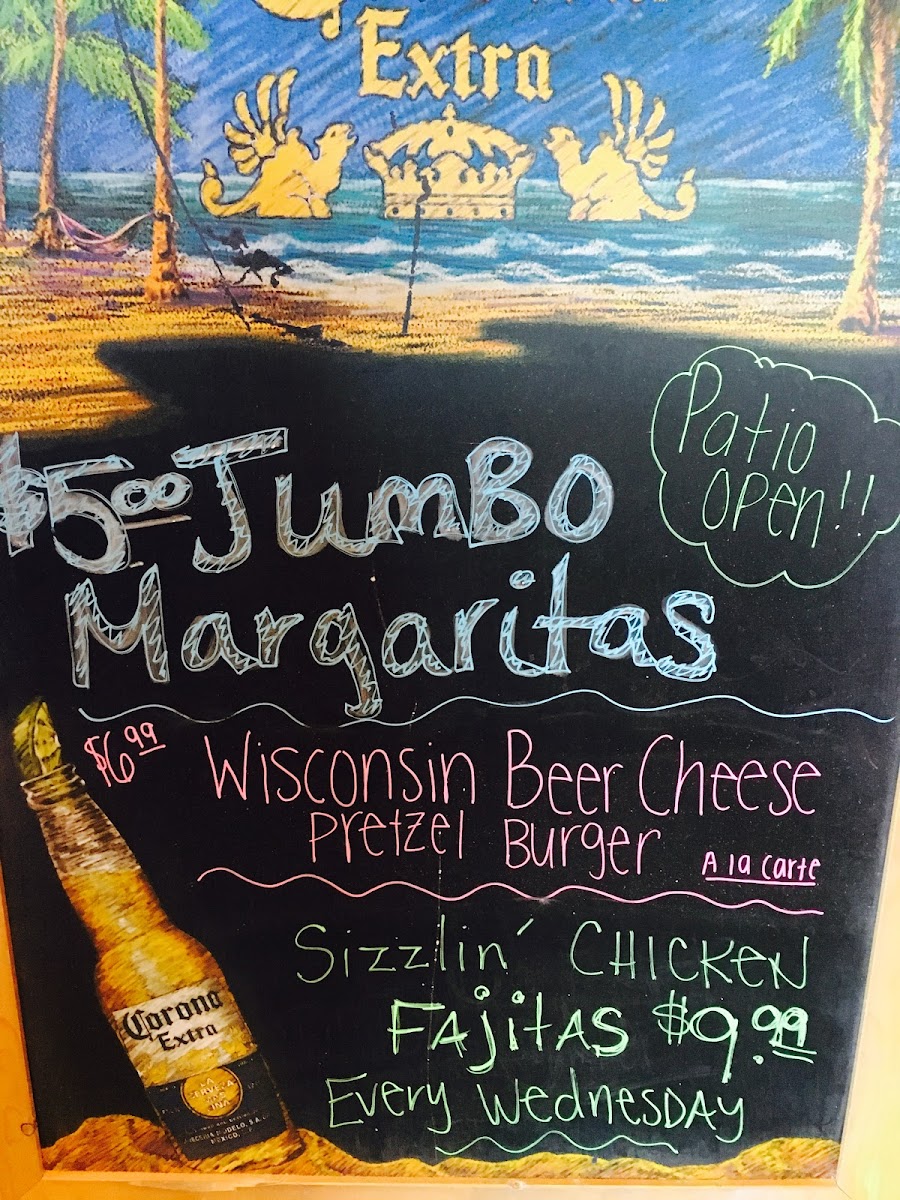 Extra
Patio
open!!
$5.00 Jumbo
Margaritas
$6.99
Wisconsin Beer Cheese
Pretzel Burger
A la carte
Sizzlin' CHICKEN
FAjitAS $9.99
Every WednesDAY
Corona
Extra